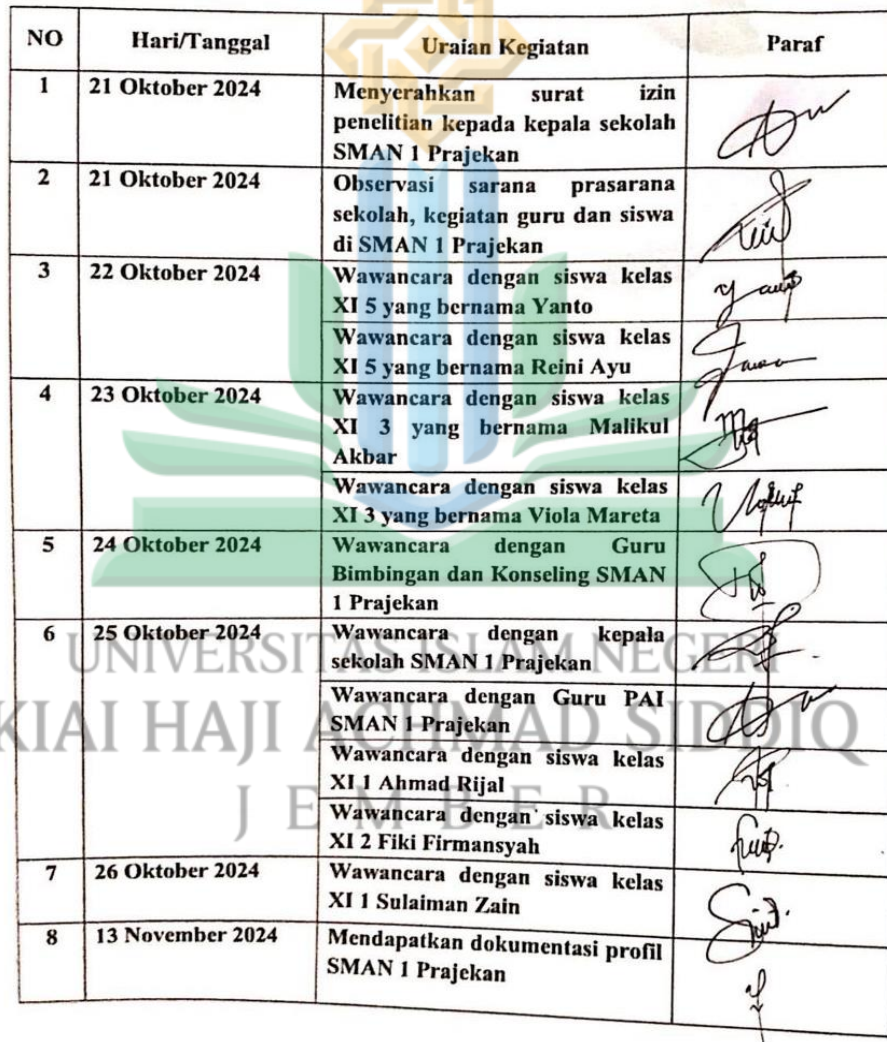 NO Hari/Tanggal Uraian Kegiatan Paraf
1 21 Oktober 2024 Menyerahkan surat izin
penelitian kepada kepala sekolah
SMAN 1 Prajekan
2 21 Oktober 2024 Observasi sarana prasarana
sekolah, kegiatan guru dan siswa
di SMAN 1 Prajekan
3 22 Oktober 2024 Wawancara dengan siswa kelas
XI 5 yang bernama Yanto
Wawancara dengan siswa kelas
XI 5 yang bernama Reini Ayu
4 23 Oktober 2024 Wawancara dengan siswa kelas
XI 3 yang bernama Malikul
Akbar
Wawancara dengan siswa kelas
XI 3 yang bernama Viola Mareta
5 24 Oktober 2024 Wawancara dengan Guru
Bimbingan dan Konseling SMAN
1 Prajekan
6 25 Oktober 2024 Wawancara dengan kepala
sekolah SMAN 1 Prajekan
Wawancara dengan Guru PAI
SMAN 1 Prajekan
Wawancara dengan siswa kelas
XI 1 Ahmad Rijal
Wawancara dengan siswa kelas
XI 2 Fiki Firmansyah
7 26 Oktober 2024 Wawancara dengan siswa kelas
XI 1 Sulaiman Zain
8 13 November 2024 Mendapatkan dokumentasi profil
SMAN 1 Prajekan
UNIVERSITAS ISLAM NEGERI
KIAI HAJI ACHMAD SIDDIQ
JEMBER